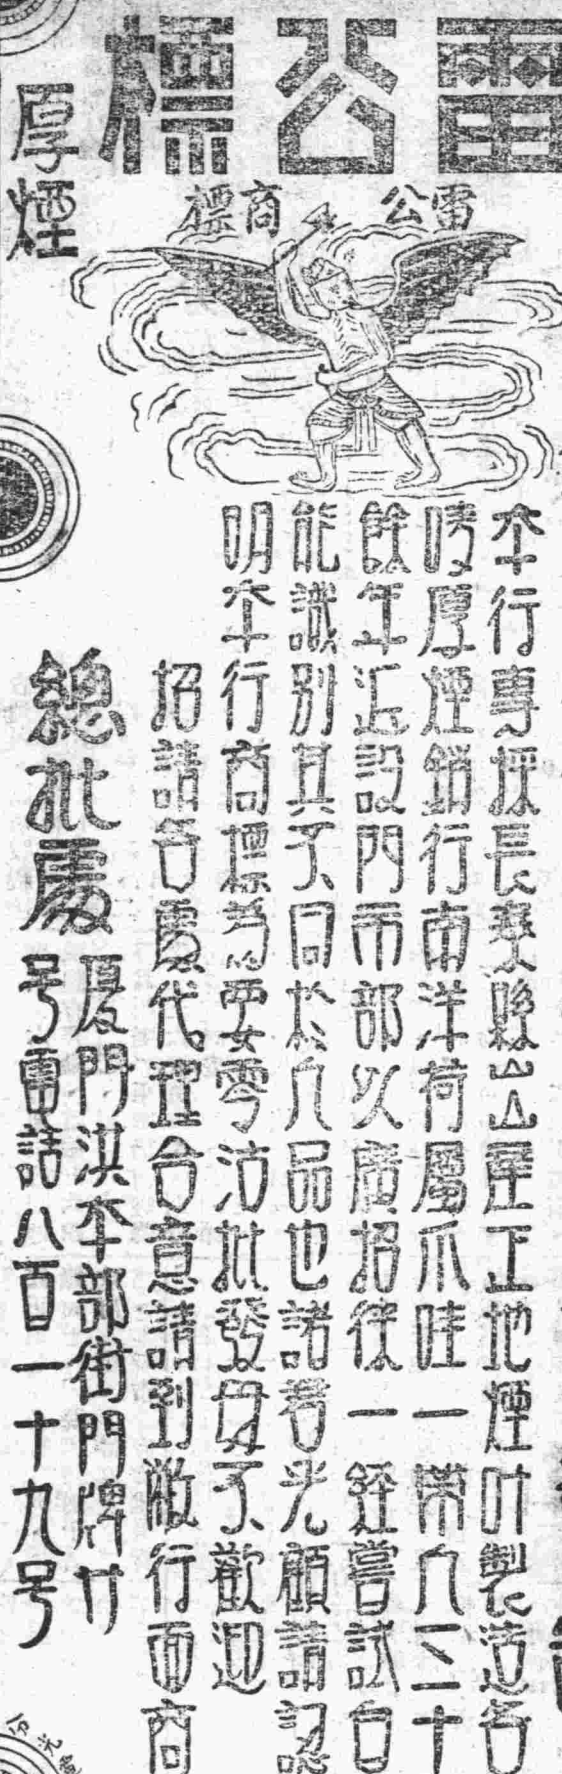 雷公標
雷公　商標
本行專採長泰縣山産正地煙叶製造各
時厚煙銷行南洋荷屬爪哇一帶凡三十
餘年近設門市部以廣招徠一經嘗試自
能識別其不同於凡品也諸君光顧請認
明本行商標為要零沽批發毋不歡迎
招請各處代理合意請到敝行面商
厚煙
總批處
厦門洪本部街門牌廿
号電話八百一十九号